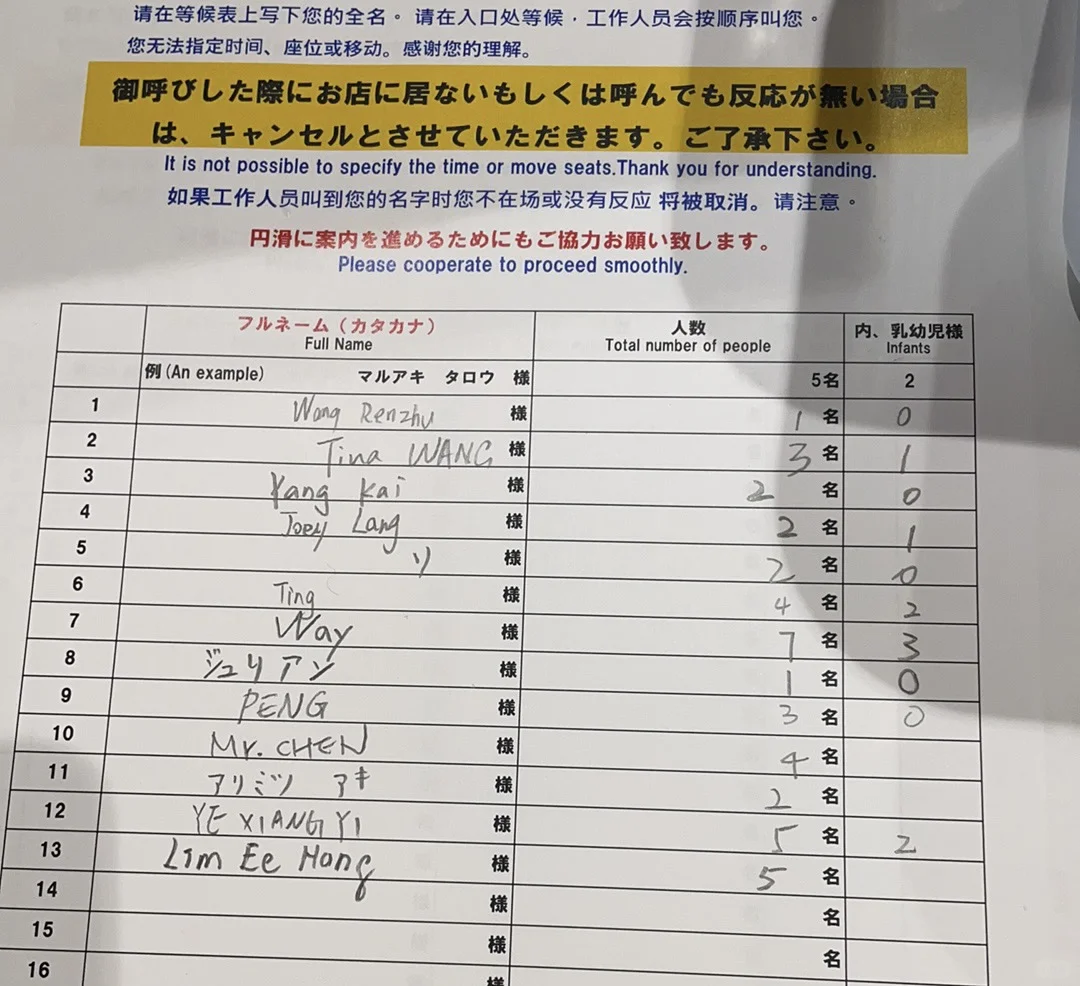 请在等候表上写下您的全名。请在入口处等候，工作人员会按顺序叫您。
您无法指定时间、座位或移动。感谢您的理解。
御呼びした際にお店に居ないもしくは呼んでも反応が無い場合
は、キャンセルとさせていただきます。ご了承下さい。
It is not possible to specify the time or move seats.Thank you for understanding.
如果工作人员叫到您的名字时您不在场或没有反应 将被取消。请注意。
円滑に案内を進めるためにもご協力お願い致します。
Please cooperate to proceed smoothly.
フルネーム（カタカナ） 人数 内、乳幼児様
Full Name Total number of people Infants
例(An example) マルアキ タロウ 様 5名 2
1 Wang Renzhu 様 1 名 0
2 Tina WANG 様 3 名 1
3 Yang Kai 様 2 名 0
4 Joey Lang 様 2 名 1
5 リ 様 2 名 0
6 Ting 様 4 名 2
7 Way 様 7 名 3
8 ジュリアン 様 1 名 0
9 PENG 様 3 名 0
10 Mr. CHEN 様 4 名
11 アリミツ アキ 様 2 名
12 YE XIANG YI 様 5 名 2
13 Lim Ee Hong 様 5 名
14 様 名
15 様 名
16 様